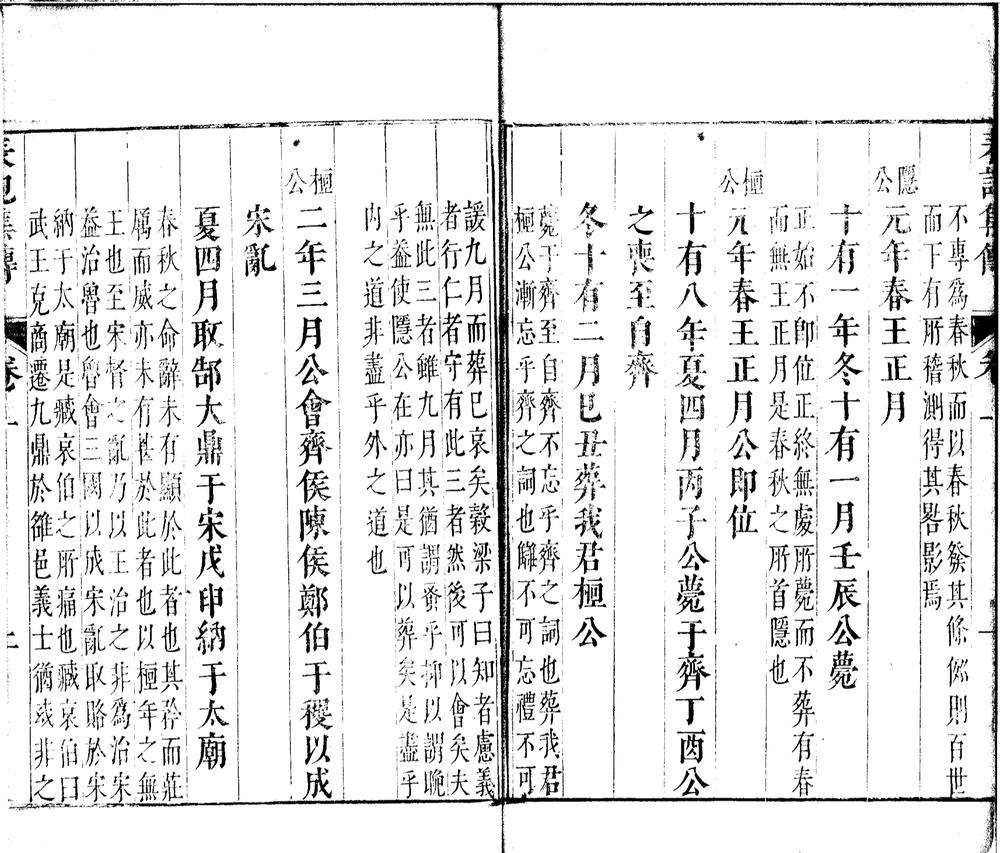 不專爲春秋而以春秋發其條例則百世
而下有所稽測得其晷影焉
隱公
元年春王正月
十有一年冬十有一月壬辰公薨
正始不即位正終無處所薨而不葬有春
而無王正月是春秋之所首隱也
桓公
元年春王正月公即位
十有八年夏四月丙子公薨于齊丁酉公
之喪至自齊
冬十有二月己丑葬我君桓公
薨于齊至自齊不忘乎齊之詞也葬我君
桓公漸忘乎齊之詞也讎不可忘禮不可
諼九月而葬已哀矣穀梁子曰知者慮義
者行仁者守有此三者然後可以會矣夫
無此三者雖九月其猶謂蚤乎抑以謂晚
乎盖使隱公在亦曰是可以葬矣是盡乎
内之道非盡乎外之道也
桓公
二年三月公會齊侯陳侯鄭伯于稷以成
宋亂
夏四月取郜大鼎于宋戊申納于太廟
春秋之命辭未有顯於此者也其矜而莊
厲而威亦未有甚於此者也以桓年之無
王也至宋督之亂乃以王治之非爲治宋
益治魯也魯會三國以成宋亂取賂於宋
納于太廟是臧哀伯之所痛也臧哀伯曰
武王克商遷九鼎於雒邑義士猶或非之